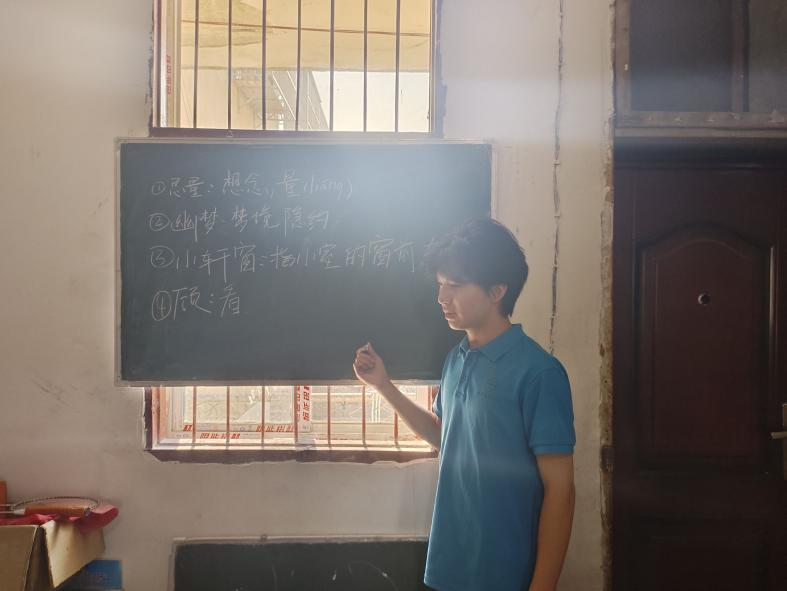 ①思量：想念，量(liáng)
②幽梦：梦境隐约
③小轩窗：指小室的窗前
④顾：看